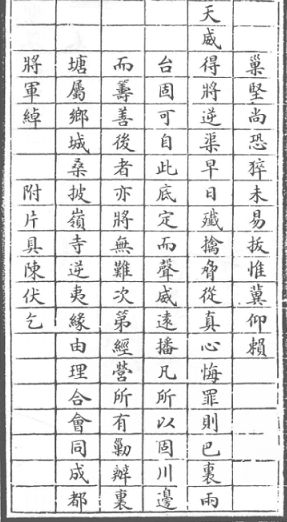 巢堅尚恐猝未易拔惟冀仰賴
天威得將逆渠早日殲擒脅從真心悔罪則巴裏兩
台固可自此底定而聲威遠播凡所以固川邊
而籌善後者亦將無難次第經營所有勦辦裏
塘屬鄉城桑披嶺寺逆夷緣由理合會同成都
將軍綽 附片具陳伏乞